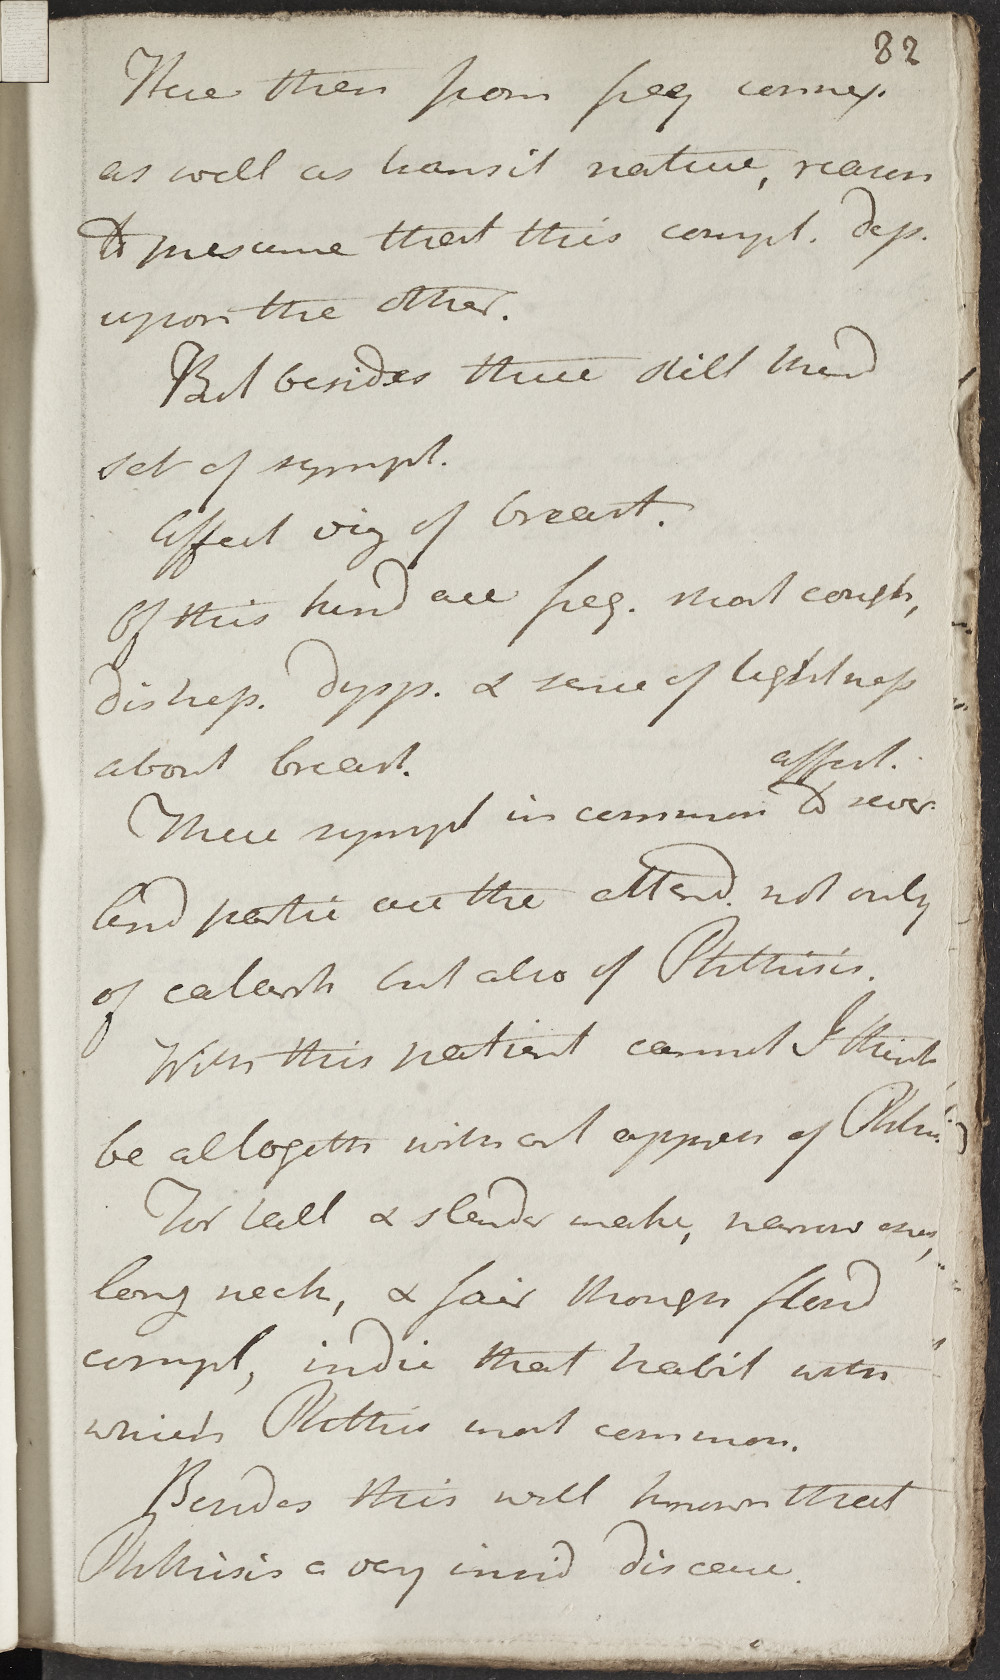 82
Here then from freq connex.
as well as transit nature, reason
to presume that this compl. dep.
upon the other.
But besides these still third
set of sympt.
Affect vig of breast.
Of this kind are freq. short cough,
distress. dysp. & sense of tightness
about breast.
affect.
These sympt in common to sever.
and partic are the attend. not only
of catarrh but also of Phthisis.
With this patient cannot I think
be altogeth without appreh of Phthis.
For tall & slender make, narrow
long neck, & fair though florid
compl, indic that habit with
which Phthis most common.
Besides this well known that
Phthisis a very insid disease.